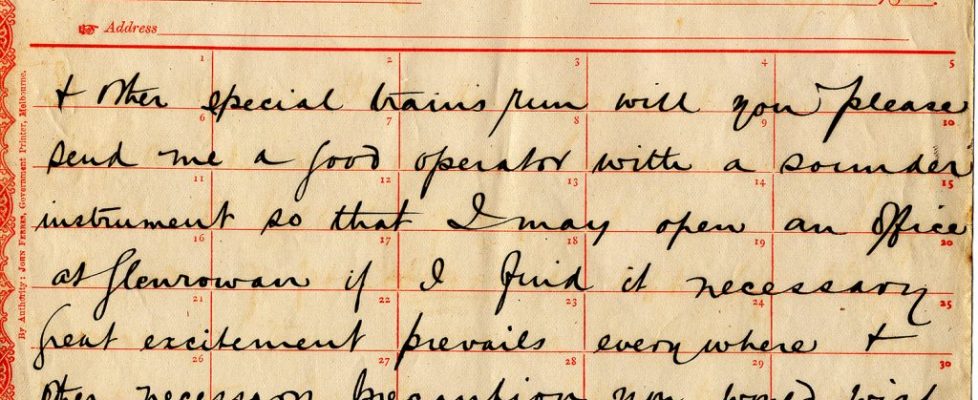 ☞ Address
1 2 3 4 5
& other special trains run will you please
6 7 8 9 10
send me a good operator with a sounder
11 12 13 14 15
instrument so that I may open an office
16 17 18 19 20
at Glenrowan if I find it necessary
21 22 23 24 25
great excitement prevails everywhere &
26 27 28 29 30
other necessary precaution you would wish
By Authority: JOHN FERRES, Government Printer, Melbourne.